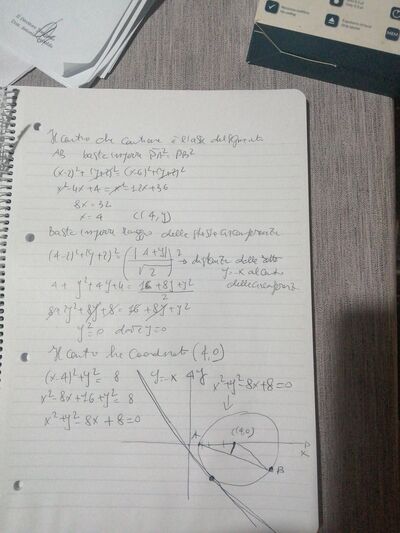 Il centro che contiene è l'asse del segmento
AB basta imporre PA² = PB²
(x-2)²+(y+2)² = (x-6)²+(y+2)²
x²-4x+4 = x²-12x+36
8x=32
x=4 C(4,y)
basta imporre raggio della stessa circonferenza
(4-2)²+(y+2)² = (|4+y|/√2)² → distanza della retta
y=-x al centro
della circonferenza
4+y²+4y+4 = 16+8y+y²/2
8+2y²+8y+8 = 16+8y+y²
y²=0 dove y=0
Il centro ha coordinate (4,0)
(x-4)²+y²=8
y=-x
y
x²+y²-8x+8=0
x²-8x+16+y²=8
x²+y²-8x+8=0
(4,0)
A
x
B